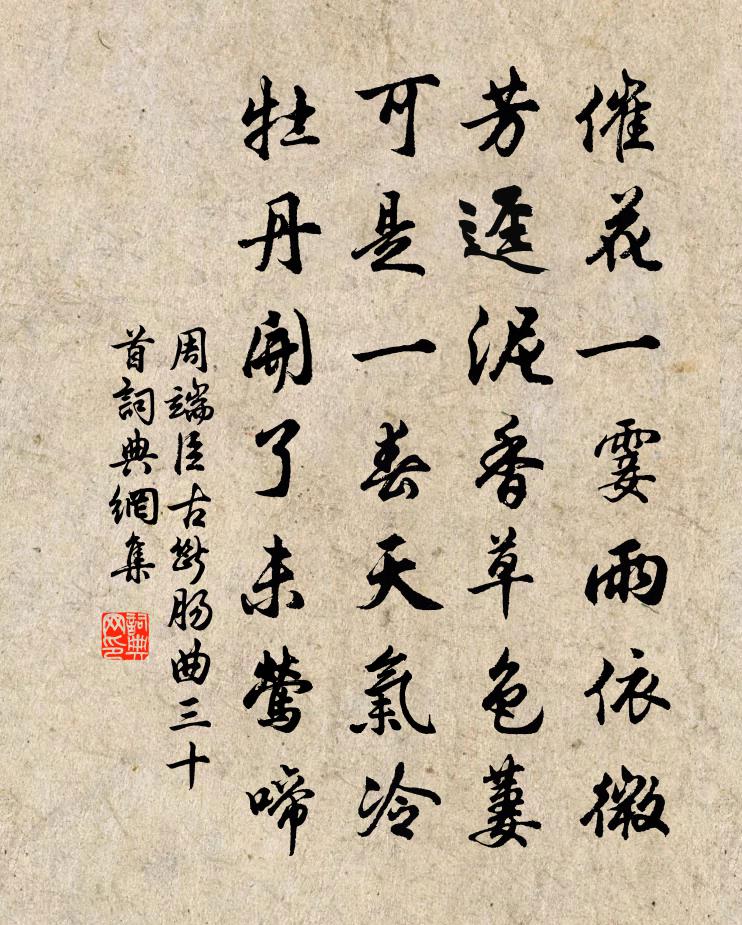 催花一霎雨依微
芳逕泥香草色萋
可是一春天氣冷
牡丹開了未鶯啼
周端臣古斷腸曲三十
首詞典網集
詞典
网印